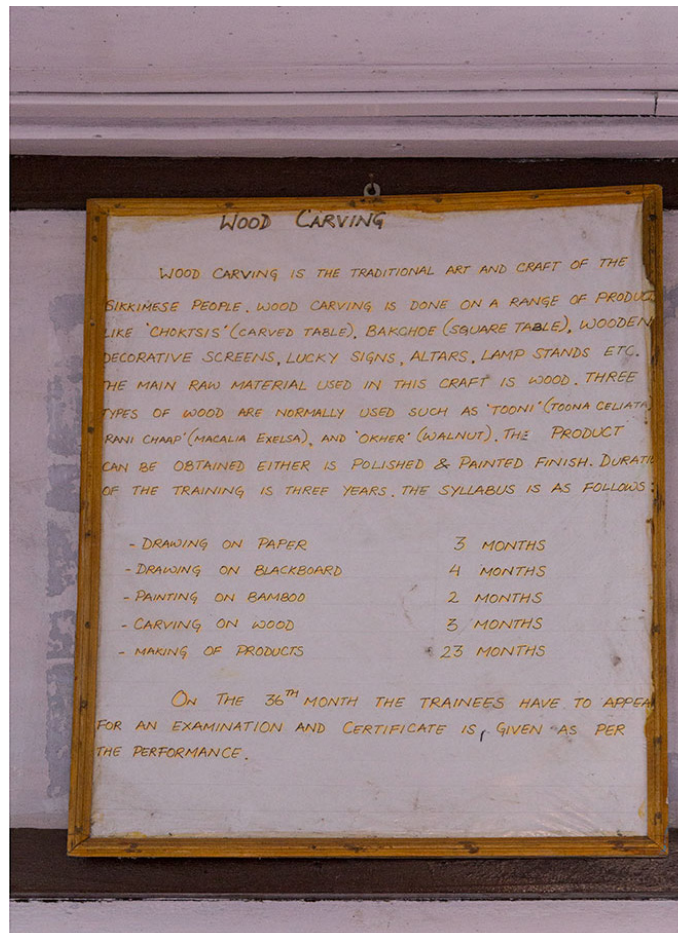 WOOD CARVING
WOOD CARVING IS THE TRADITIONAL ART AND CRAFT OF THE
SIKKIMESE PEOPLE. WOOD CARVING IS DONE ON A RANGE OF PRODUC
LIKE 'CHOKTSIS' (CARVED TABLE), BAKCHOE (SQUARE TABLE), WOODEN
DECORATIVE SCREENS, LUCKY SIGNS, ALTARS, LAMP STANDS ETC.
THE MAIN RAW MATERIAL USED IN THIS CRAFT IS WOOD. THREE
TYPES OF WOOD ARE NORMALLY USED SUCH AS 'TOONI' (TOONA CELIATA,
RANI CHAAP' (MACALIA EXELSA), AND 'OKHER' (WALNUT). THE PRODUCT
CAN BE OBTAINED EITHER IS POLISHED & PAINTED FINISH. DURATIO
OF THE TRAINING IS THREE YEARS. THE SYLLABUS IS AS FOLLOWS:
- DRAWING ON PAPER 3 MONTHS
- DRAWING ON BLACKBOARD 4 MONTHS
- PAINTING ON BAMBOO 2 MONTHS
- CARVING ON WOOD 3 MONTHS
- MAKING OF PRODUCTS 23 MONTHS
ON THE 36TH MONTH THE TRAINEES HAVE TO APPEA
FOR AN EXAMINATION AND CERTIFICATE IS, GIVEN AS PER
THE PERFORMANCE.